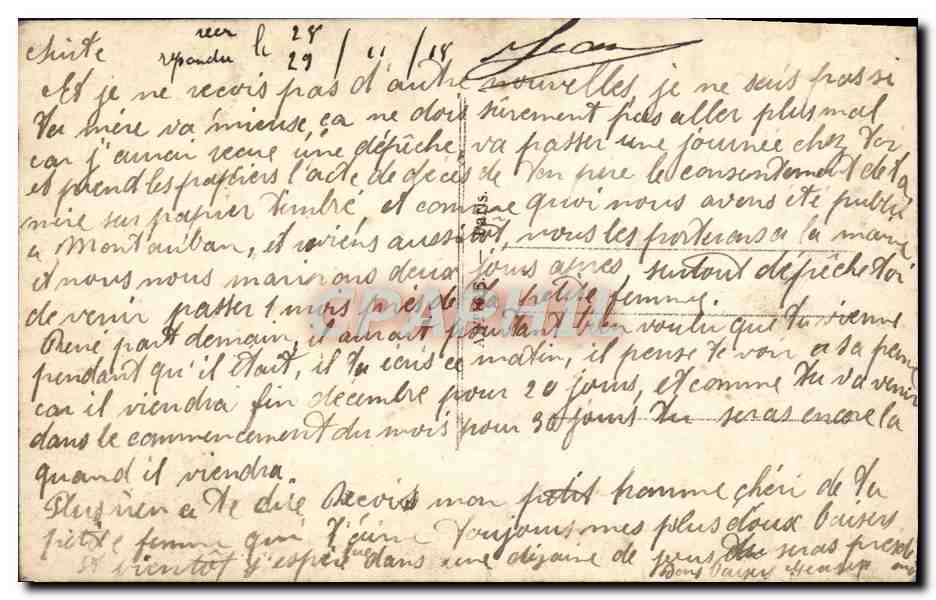 suite
reçu le 28
répondu 29 / 11 / 18
Jean
Et je ne recois pas d'autre nouvelles, je ne sais pas si
ta mère va mieuse, ca ne dois sûrement pas aller plus mal
car j'aurai recue une dépêche, va passer une journée chez toi
et prend les papiers l'acte de décés de ton père le consentement de ta
mère sur papier timbré et comme quoi nous avons été publié
a Montauban, et reviens aussitôt, nous les porterons a la mairie
et nous nous marirons deux jours apres, surtout dépêche toi
de venir passer 1 mois près de ta petite femme.
René part demain, il aurait pourtant bien voulu que tu vienne
pendant qu'il était, il tu ecris ce matin, il pense te voir a sa perme
car il viendra fin decembre pour 20 jours, et comme tu va venir
dans le commencement du mois pour 30 jours tu seras encore la
quand il viendra.
Plus rien a te dire Recois mon petit homme chéri de ta
petite femme qui t'aime toujours mes plus doux baisers
et bientôt j'espère que dans une dizaine de jours tu seras près de
Bons baisers
Paris.
CPAPHIL